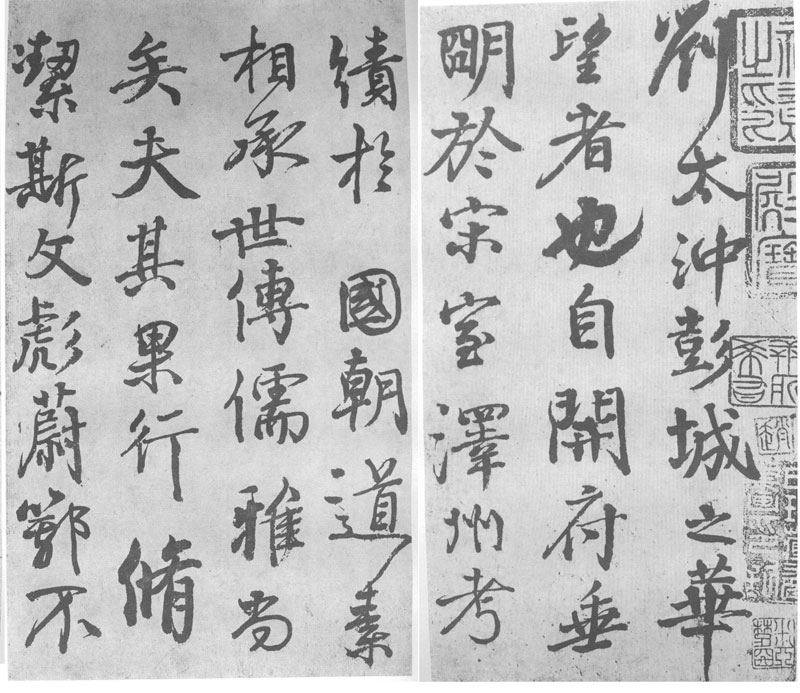 劉太沖彭城之華
望者也自開府垂
朙於宋室澤州考
績於 國朝道素
相承世傳儒雅尚
矣夫其果行脩
潔斯文彪蔚鄂不